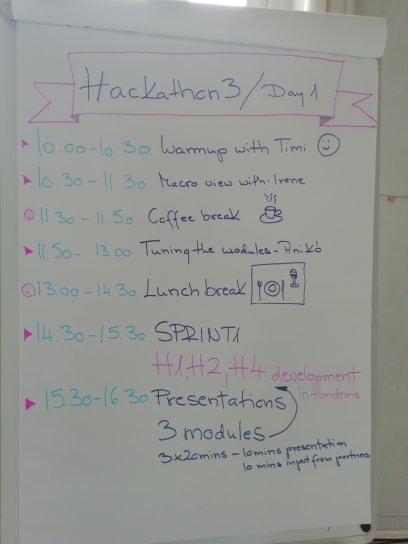 Hackathon 3 / Day 1
10.00-10.30 Warmup with Timi
10.30-11.30 Macro view with Irene
11.30-11.50 Coffee break
11.50-13.00 Tuning the modules - Anikó
13.00-14.30 Lunch break
14.30-15.30 SPRINT1
H1, H2, H4 development
in tandems
15.30-16.30 Presentations
3 modules
3x20mins - 10mins presentation
10 mins input from partners